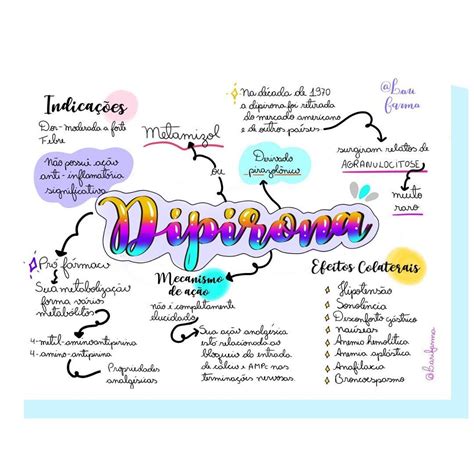 Indicações
Dor-moderada a forte
Febre
Não possui ação
anti-inflamatória
significativa
Metamizol
ou
Na década de 1970
a dipirona foi retirada
do mercado americano
e de outros países
@Lari
farma
surgiram relatos de
AGRANULOCITOSE
muito
raro
Derivado
pirazolônico
Dipirona
Pró fármaco
Sua metabolização
forma vários
metabólitos
4-metil-aminoantipirina
4-amino-antipirina
Propriedades
analgésicas
Mecanismo
de ação
não é completamente
elucidado
Sua ação analgésica
está relacionado ao
bloqueio da entrada
de cálcio e AMPc nas
terminações nervosas.
Efeitos Colaterais
Hipotensão
Sonolência
Desconforto gástrico
naúseas
Anemia hemolítica
Anemia aplástica
Anafilaxia
Broncoespasmo